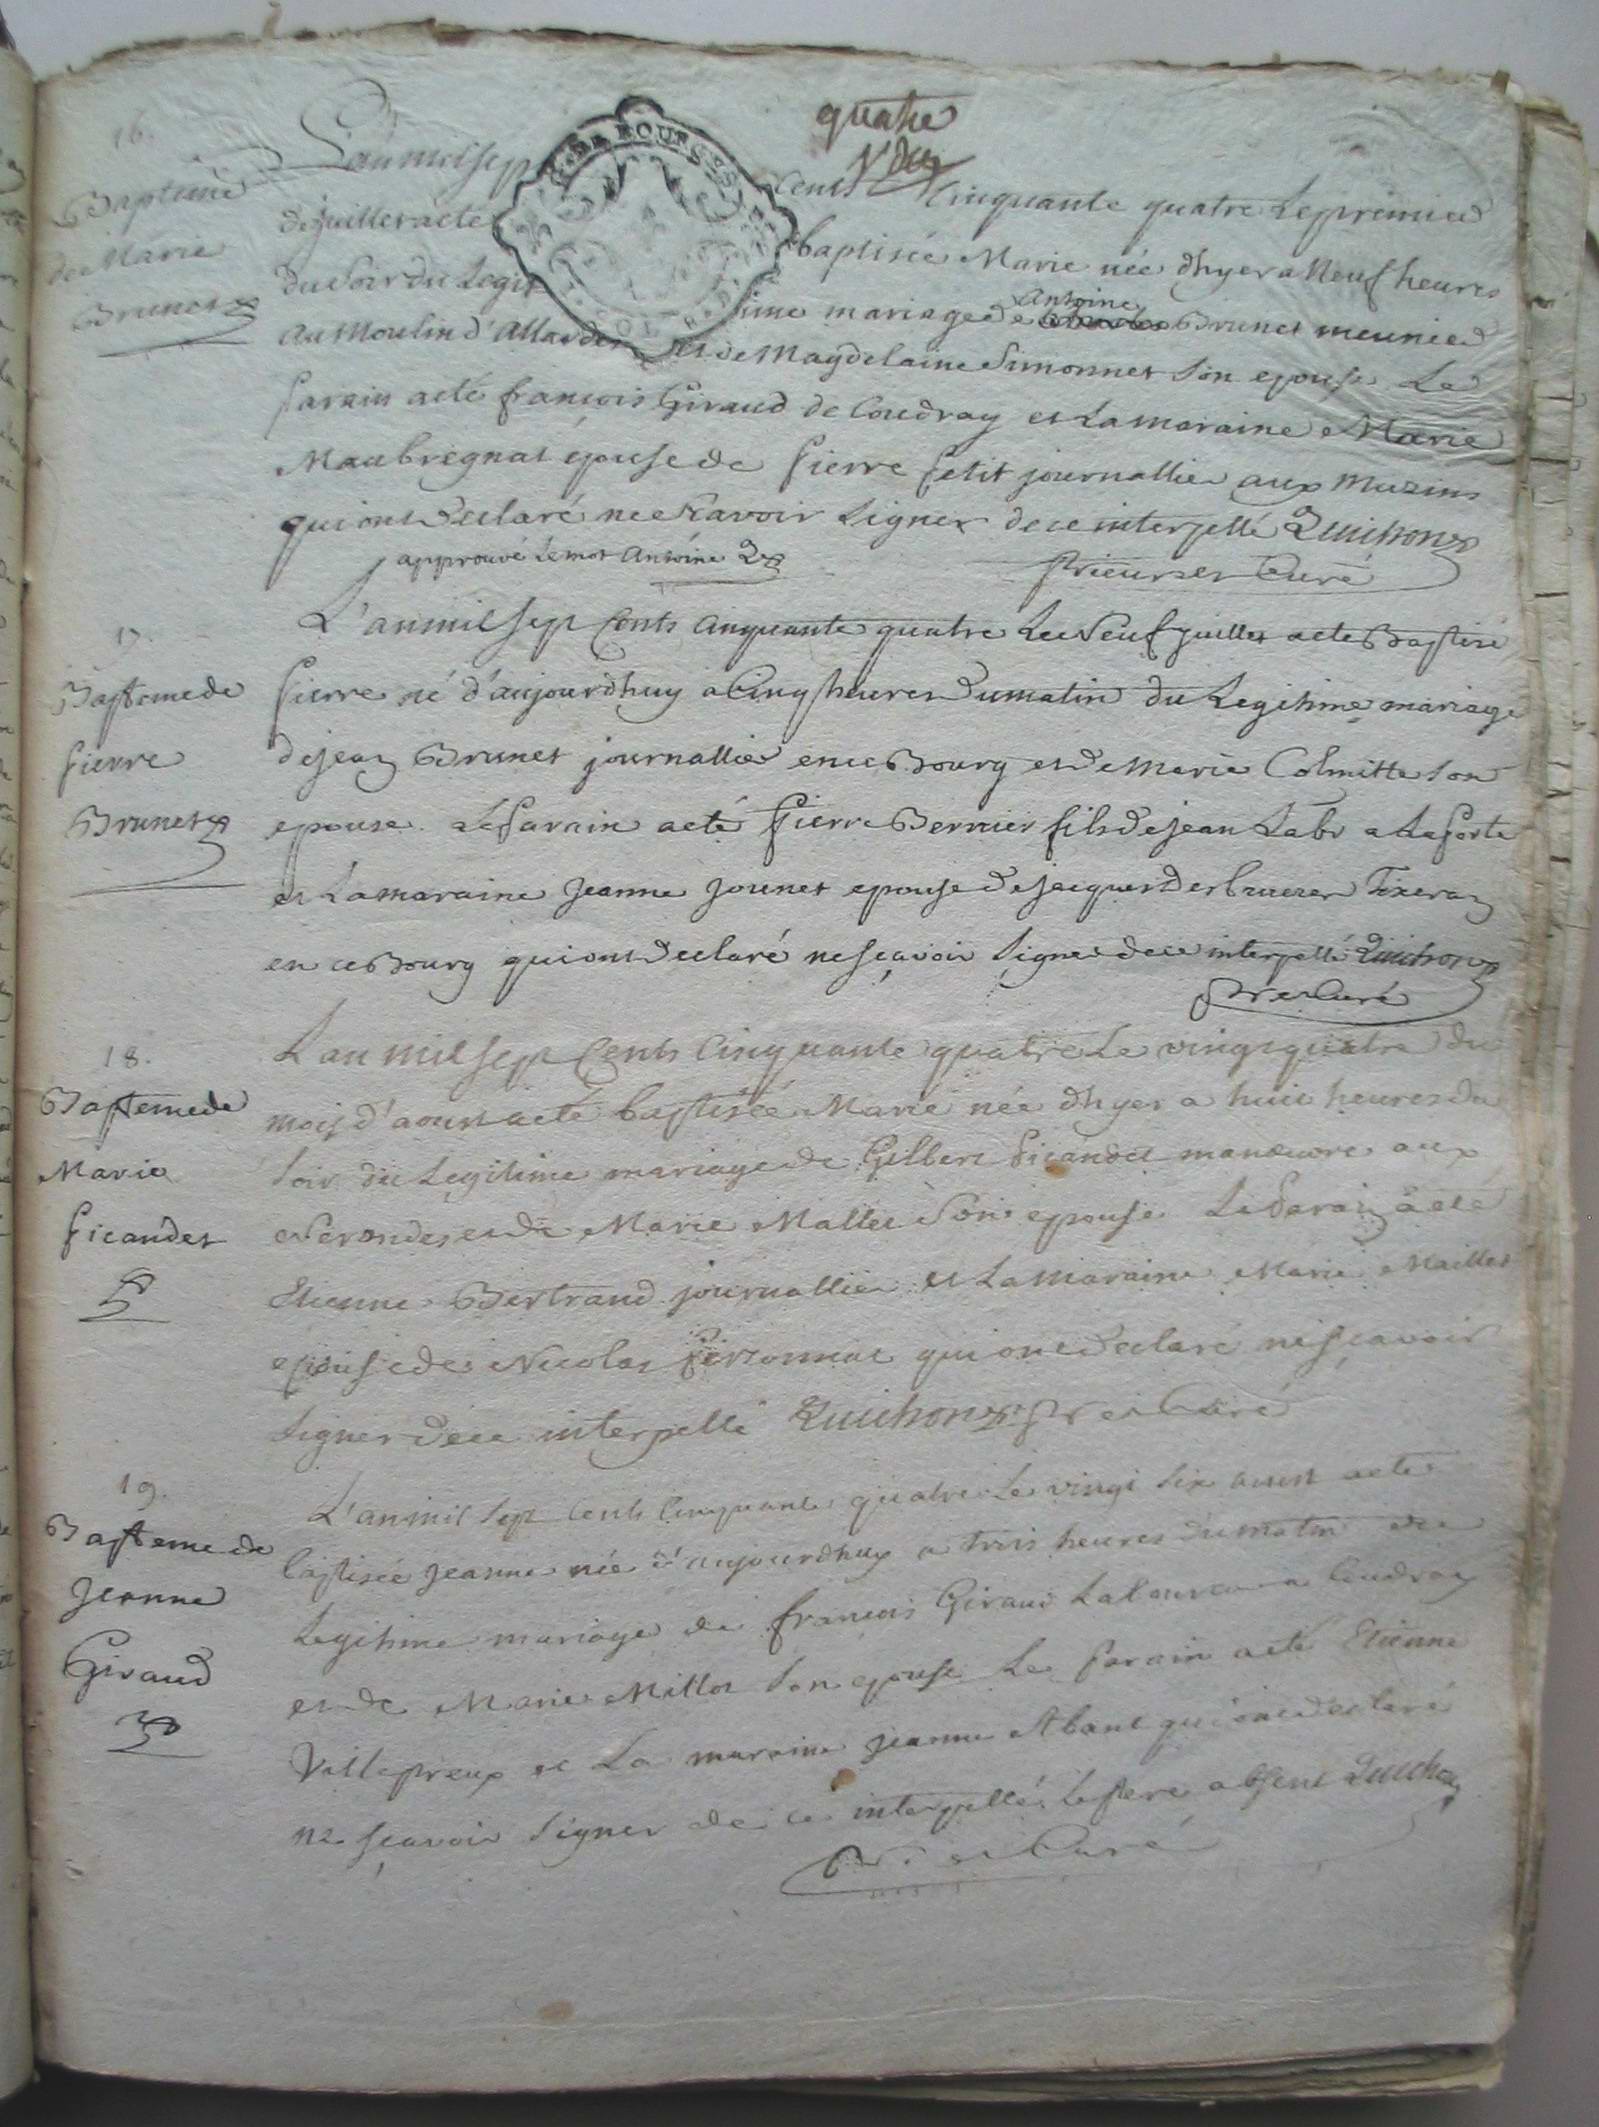 quatre
16.
Baptême
de Marie
Brunet
L'an mil sept cents Cinquante quatre Le premier
de juillet a eté baptisée Marie née d'hyer a Neuf heures
du Soir du Legitime mariage de Antoine Brunet meunier
Au Moulin d'Allardes et de Magdelaine Simonnet Son epouse Le
Parain a eté françois Giraud de Coudray et La maraine Marie
Maubregnat épouse de Pierre Petit journallier aux Mazins
qui ont Declaré ne Scavoir Signer de ce interpellé Quichon
approuvé Le mot Antoine Q
Prieur et Curé
17.
Bapteme de
Pierre
Brunet
L'an mil Sept Cents Cinquante quatre Le Neuf juillet a eté Baptisé
Pierre né d'aujourdhuy a Cinq heures Du matin du Legitime mariage
de jean Brunet journallier en ce Bourg et De Marie Colmitte Son
epouse. Le Parain a eté Pierre Bernier fils De jean Labr a La Porte
et La maraine Jeanne Jounet epouse De jacques Desbrueres Tixeran
en ce Bourg qui ont Declaré ne sçavoir Signer De ce interpellé Quichon
Pr et Curé
18.
Bapteme de
Marie
Picandet
L'an mil Sept Cents Cinquante quatre Le vingt quatre du
mois d'aoust a eté baptisée Marie née d'hyer a huit heures du
Soir du Legitime mariage de Gilbert Picandet manœuvre aux
et de Marie Mallet Son epouse Le Parain a eté
Etienne Bertrand journallier et La maraine Marie Maillet
epouse de Nicolas Perronnat qui ont Declaré ne sçavoir
Signer De ce interpellé Quichon Pr et Curé
19.
Bapteme de
Jeanne
Giraud
L'an mil Sept Cents Cinquante quatre Le vingt Six aoust a eté
baptisée Jeanne née d'aujourdhuy a trois heures du matin du
Legitime mariage de françois Giraud Laboureur a Coudray
et de Marie Millot Son epouse Le Parain a eté Etienne
Villepreux et La maraine jeanne Abant qui ont Declaré
ne sçavoir Signer de ce interpellé Le Pere absent Quichon
Pr. et Curé